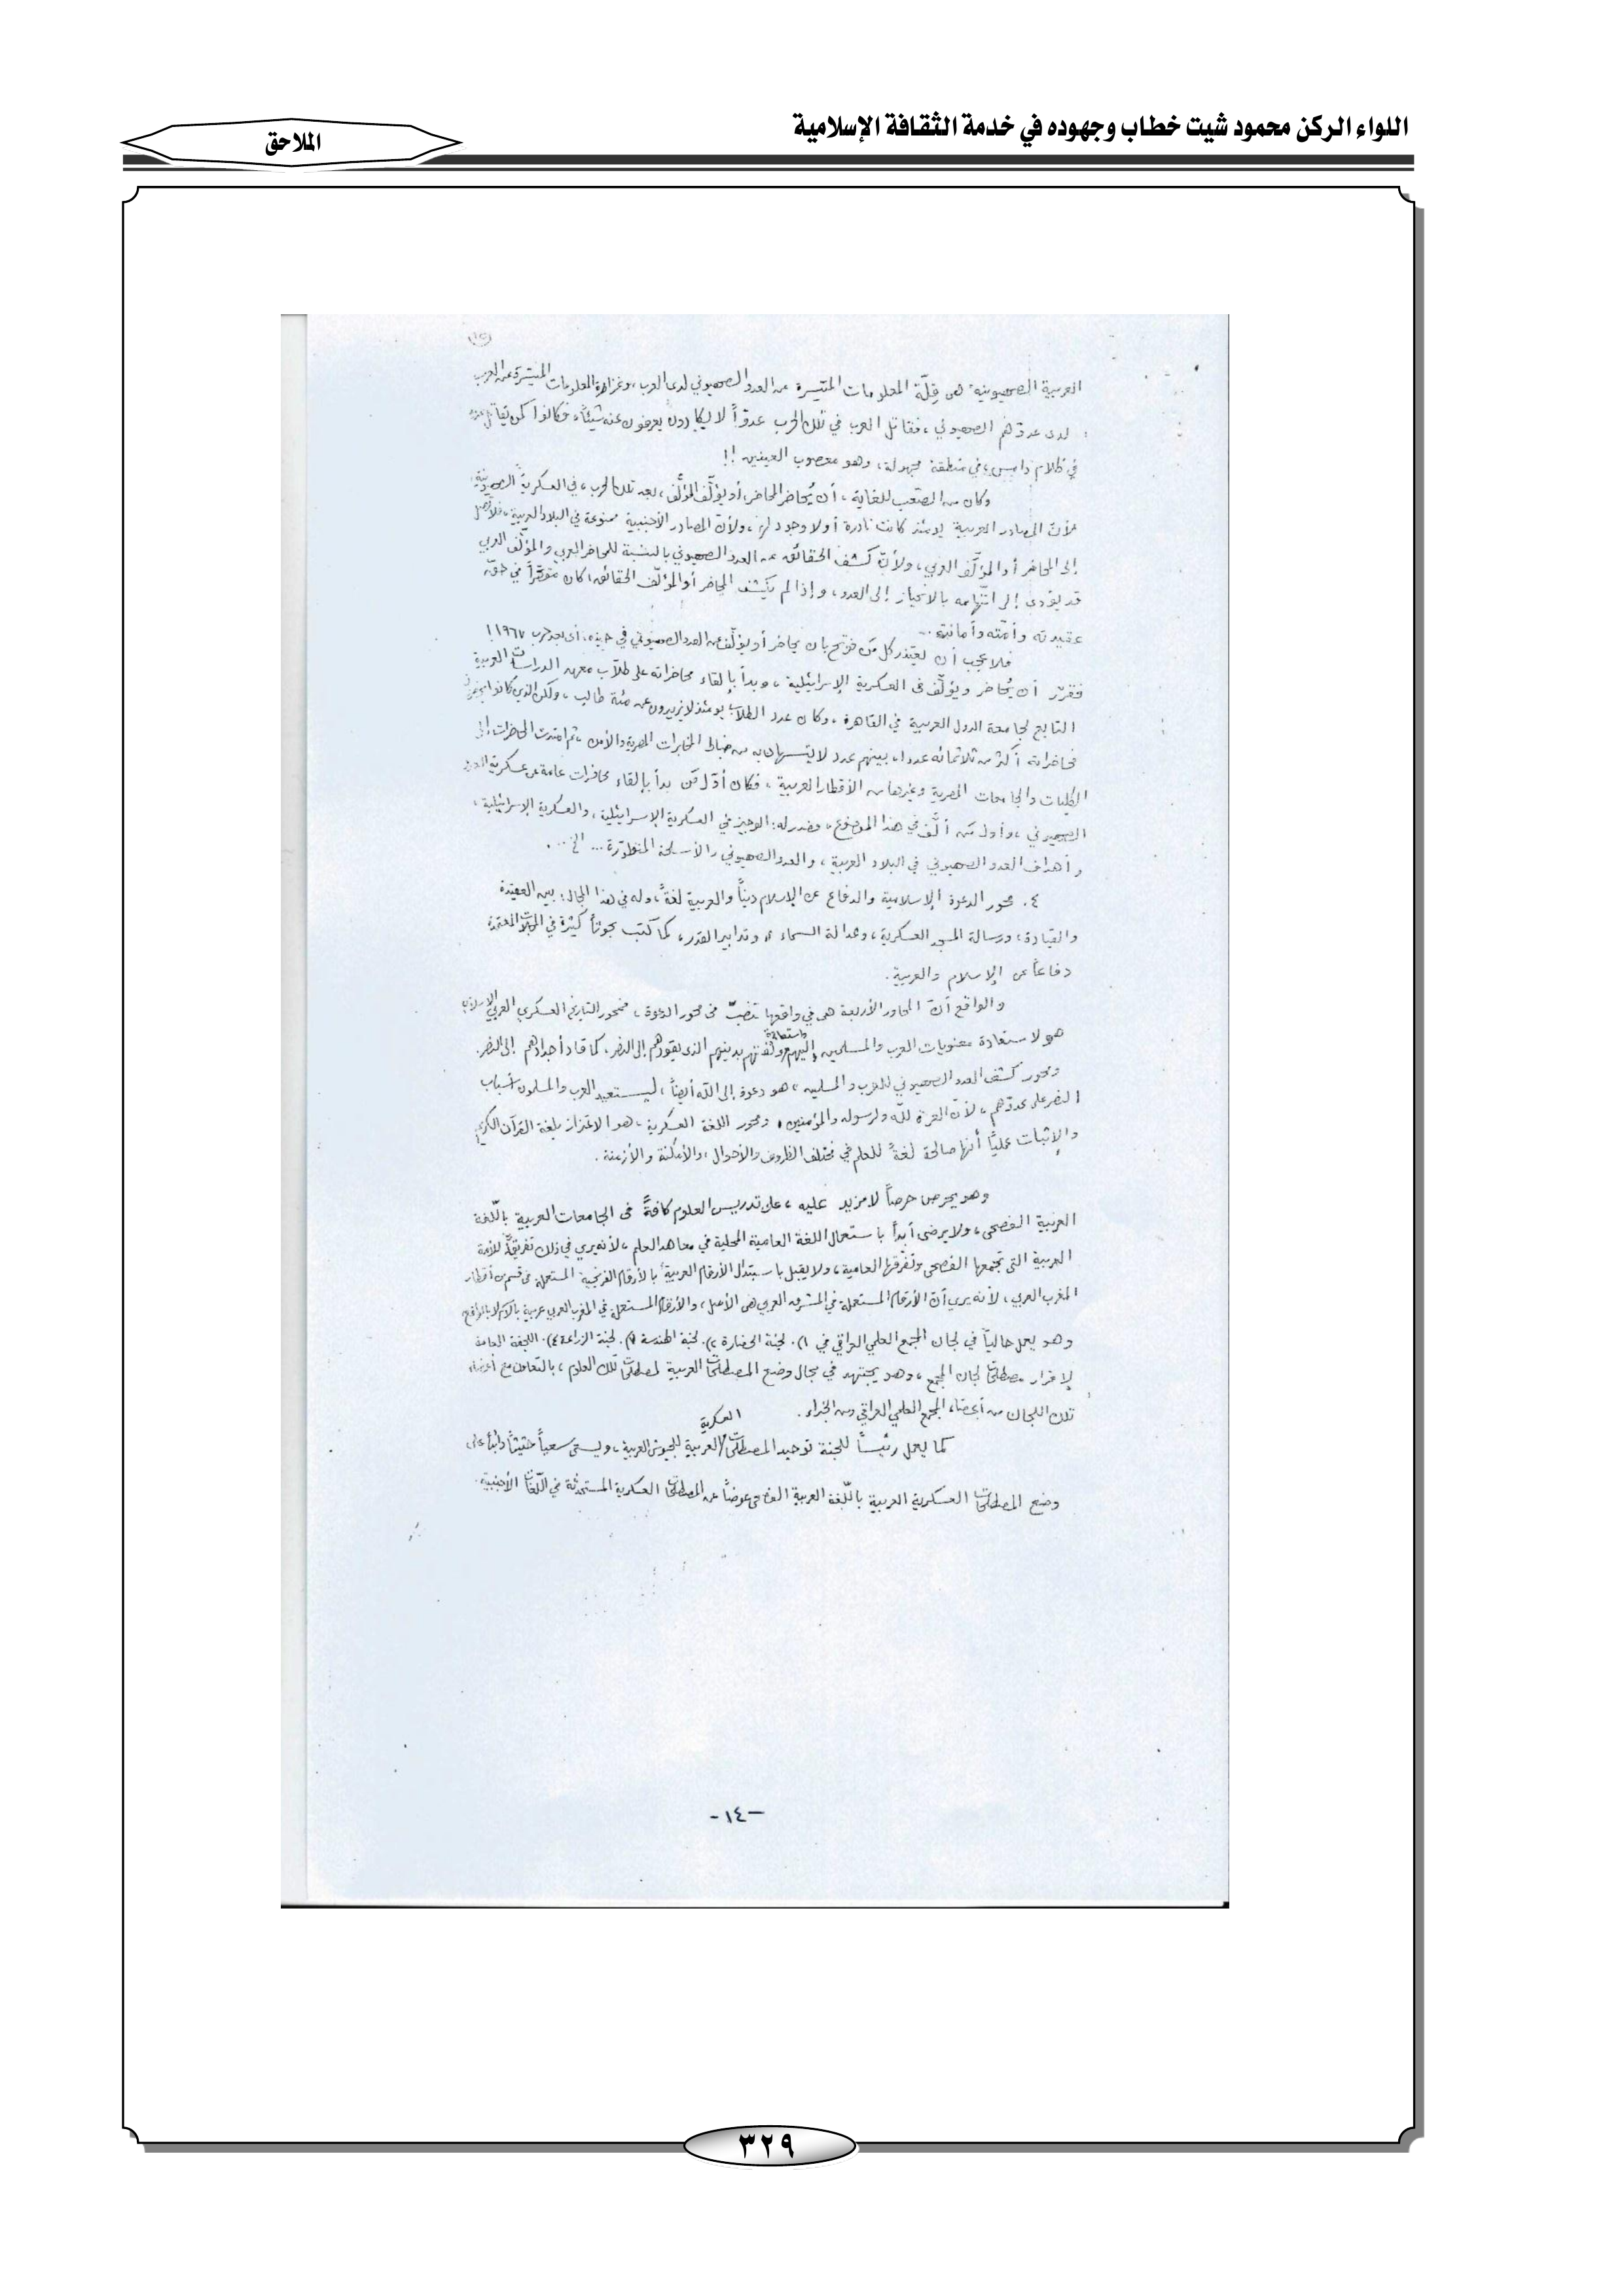 اللواء الركن محمود شيت خطاب وجهوده في خدمة الثقافة الإسلامية
الملاحق
العربية الصهيونية هي قِلّة المعلومات المتيسرة عن العدو الصهيوني لدى العرب، وغزارة المعلومات المتيسرة عن العرب
لدى عدوّهم الصهيوني، فقاتل العرب في تلك الحرب عدوّاً لا يكادون يعرفون عنه شيئاً، فكانوا كمن يقاتل
في ظلام دامس، في منطقة مجهولة، وهو معصوب العينين!!
وكان من الصّعب للغاية، أن يُحاضر المحاضر، أو يؤلّف المؤلّف، بعد تلك الحرب، في العسكرية الصهيونية،
لأنّ المصادر العربية يومئذ كانت نادرة أو لا وجود لها، ولأنّ المصادر الأجنبية ممنوعة في البلاد العربية، فلا تصل
إلى المحاضر أو المؤلّف العربي، ولأنّ كشف الحقائق عن العدو الصهيوني بالنسبة للمحاضر العربي والمؤلّف العربي
قد يؤدي إلى اتّهامه بالانحياز إلى العدو، وإذا لم يكشف المحاضر أو المؤلّف الحقائق، كان مقصّراً في حقّ
عقيدته وأمّته وأمانته.
فلا عجب أن يعتذر كل مَن فوتح بأن يحاضر أو يؤلّف عن العدو الصهيوني في حينه، أي بعد حرب ١٩٦٧!
فقرّر أن يُحاضر ويؤلّف في العسكرية الإسرائيلية، وبدأ بإلقاء محاضراته على طلاّب معهد الدراسات العربية
التابع لجامعة الدول العربية في القاهرة، وكان عدد الطلاّب يومئذ لا يزيدون عن مئة طالب، ولكن الذين كانوا يحضرون
محاضراته أكثر من ثلاثمائة عدداً، بينهم عدد لا يُستهان به من ضباط المخابرات المصرية والأمن، ثم امتدت المحاضرات إلى
الكليات والجامعات المصرية وغيرها من الأقطار العربية، فكان أوّل مَن بدأ بإلقاء محاضرات عامة عن عسكرية العدو
الصهيوني، وأول مَن ألّف في هذا الموضوع، وصدر له: الوجيز في العسكرية الإسرائيلية، والعسكرية الإسرائيلية،
وأهداف العدو الصهيوني في البلاد العربية، والعدو الصهيوني والأسلحة المتطوّرة... الخ....
٤. محور الدعوة الإسلامية والدفاع عن الإسلام ديناً والعربية لغةً، وله في هذا المجال: بين العقيدة
والقيادة، ورسالة المسجد العسكرية، وعدالة السماء، وتدابير القدر، كما كتب بحوثاً كثيرة في المجلات المعتمدة
دفاعاً عن الإسلام والعربية.
والواقع أنّ المحاور الأربعة هي في واقعها تصبّ في محور الدعوة، فمحور التاريخ العسكري العربي الإسلامي
هو لاستعادة معنويات العرب والمسلمين إليهم واستعادة ثقتهم بدينهم الذي يقودهم إلى النصر، كما قاد أجدادهم إلى النصر.
ومحور كشف العدو الصهيوني للعرب والمسلمين، هو دعوة إلى الله أيضاً، ليستعيد العرب والمسلمون أسباب
النصر على عدوّهم، لأنّ العزة للّه ولرسوله والمؤمنين، ومحور اللغة العسكرية، هو الاعتزاز بلغة القرآن الكريم
والإثبات عمليّاً أنها صالحة لغةً للعلم في مختلف الظروف والأحوال، والأمكنة والأزمنة.
وهو يحرص حرصاً لا مزيد عليه، على تدريس العلوم كافةً في الجامعات العربية باللّغة
العربية الفصحى، ولا يرضى أبداً باستعمال اللغة العامية المحلية في معاهد العلم، لأنه يرى في ذلك تفريقاً للأمة
العربية التي تجمعها الفصحى وتفرّقها العامية، ولا يقبل باستبدال الأرقام العربية بالأرقام الفرنجية المستعملة في قسم من أقطار
المغرب العربي، لأنه يرى أنّ الأرقام المستعملة في المشرق العربي هي الأصل، والأرقام المستعملة في المغرب العربي عربية بالاسم لا بالواقع
وهو يعمل حالياً في لجان المجمع العلمي العراقي في ١). لجنة الحضارة ٢). لجنة الهندسة ٣). لجنة الزراعة ٤). اللجنة العامة
لإقرار مصطلحات لجان المجمع، وهو يجتهد في مجال وضع المصطلحات العربية لمصطلحات تلك العلوم، بالتعاون مع أعضاء
تلك اللجان من أعضاء المجمع العلمي العراقي ومن الخبراء.
كما يعمل رئيساً للجنة توحيد المصطلحات العسكرية العربية للجيوش العربية، ويسعى سعياً حثيثاً دائباً على
وضع المصطلحات العسكرية العربية باللّغة العربية الفصحى عوضاً عن المصطلحات العسكرية المستحدثة في اللّغات الأجنبية.
-١٤-
٣٢٩